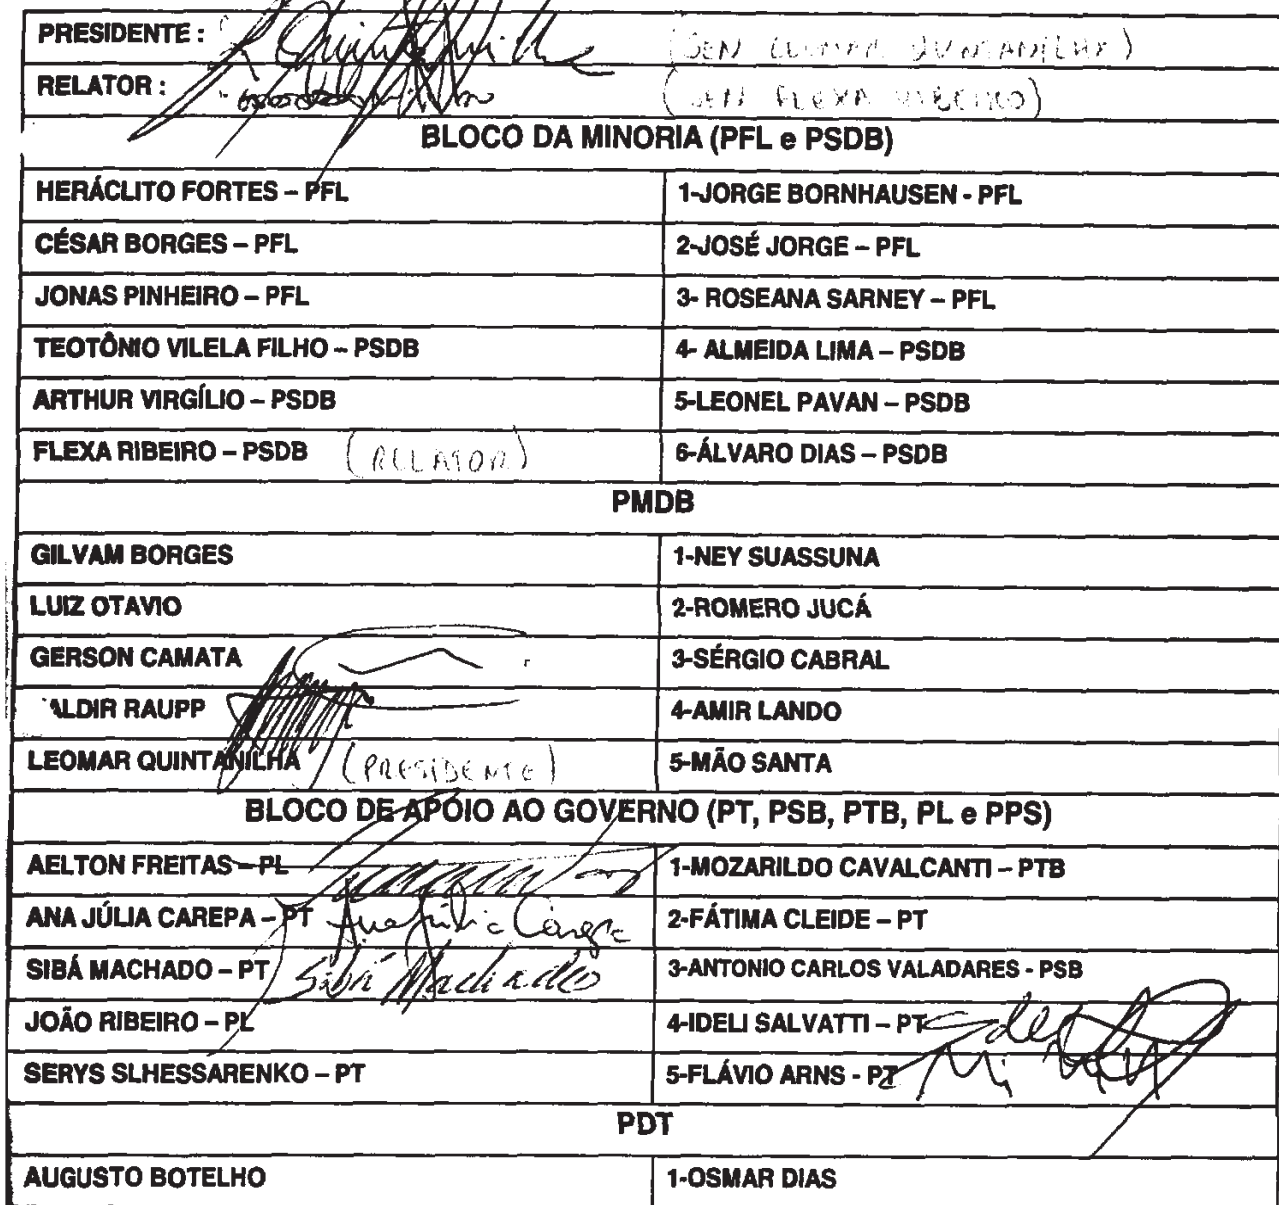 PRESIDENTE : (SEN LEOMAR QUINTANILHA)
RELATOR : (SEN FLEXA RIBEIRO)
BLOCO DA MINORIA (PFL e PSDB)
HERÁCLITO FORTES – PFL 1-JORGE BORNHAUSEN - PFL
CÉSAR BORGES – PFL 2-JOSÉ JORGE – PFL
JONAS PINHEIRO – PFL 3- ROSEANA SARNEY – PFL
TEOTÔNIO VILELA FILHO – PSDB 4- ALMEIDA LIMA – PSDB
ARTHUR VIRGÍLIO – PSDB 5-LEONEL PAVAN – PSDB
FLEXA RIBEIRO – PSDB (RELATOR) 6-ÁLVARO DIAS – PSDB
PMDB
GILVAM BORGES 1-NEY SUASSUNA
LUIZ OTAVIO 2-ROMERO JUCÁ
GERSON CAMATA 3-SÉRGIO CABRAL
ALDIR RAUPP 4-AMIR LANDO
LEOMAR QUINTANILHA (PRESIDENTE) 5-MÃO SANTA
BLOCO DE APOIO AO GOVERNO (PT, PSB, PTB, PL e PPS)
AELTON FREITAS – PL 1-MOZARILDO CAVALCANTI – PTB
ANA JÚLIA CAREPA – PT Ana Júlia Carepa 2-FÁTIMA CLEIDE – PT
SIBÁ MACHADO – PT Sibá Machado 3-ANTONIO CARLOS VALADARES - PSB
JOÃO RIBEIRO – PL 4-IDELI SALVATTI – PT
SERYS SLHESSARENKO – PT 5-FLÁVIO ARNS - PT
PDT
AUGUSTO BOTELHO 1-OSMAR DIAS